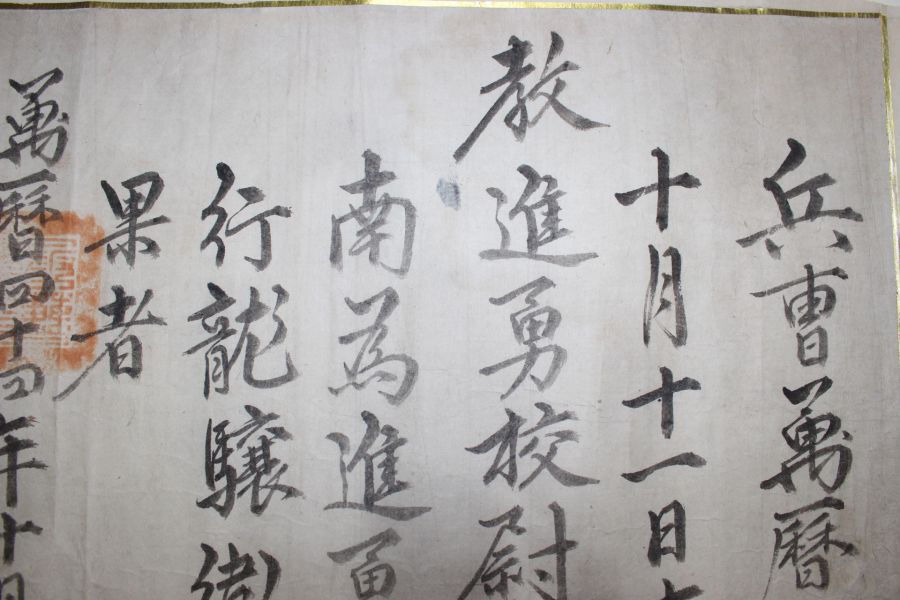 兵曺萬曆
十月十一日
教進勇校尉
南為進勇
行龍驤衛
果者
萬曆四十四年十月